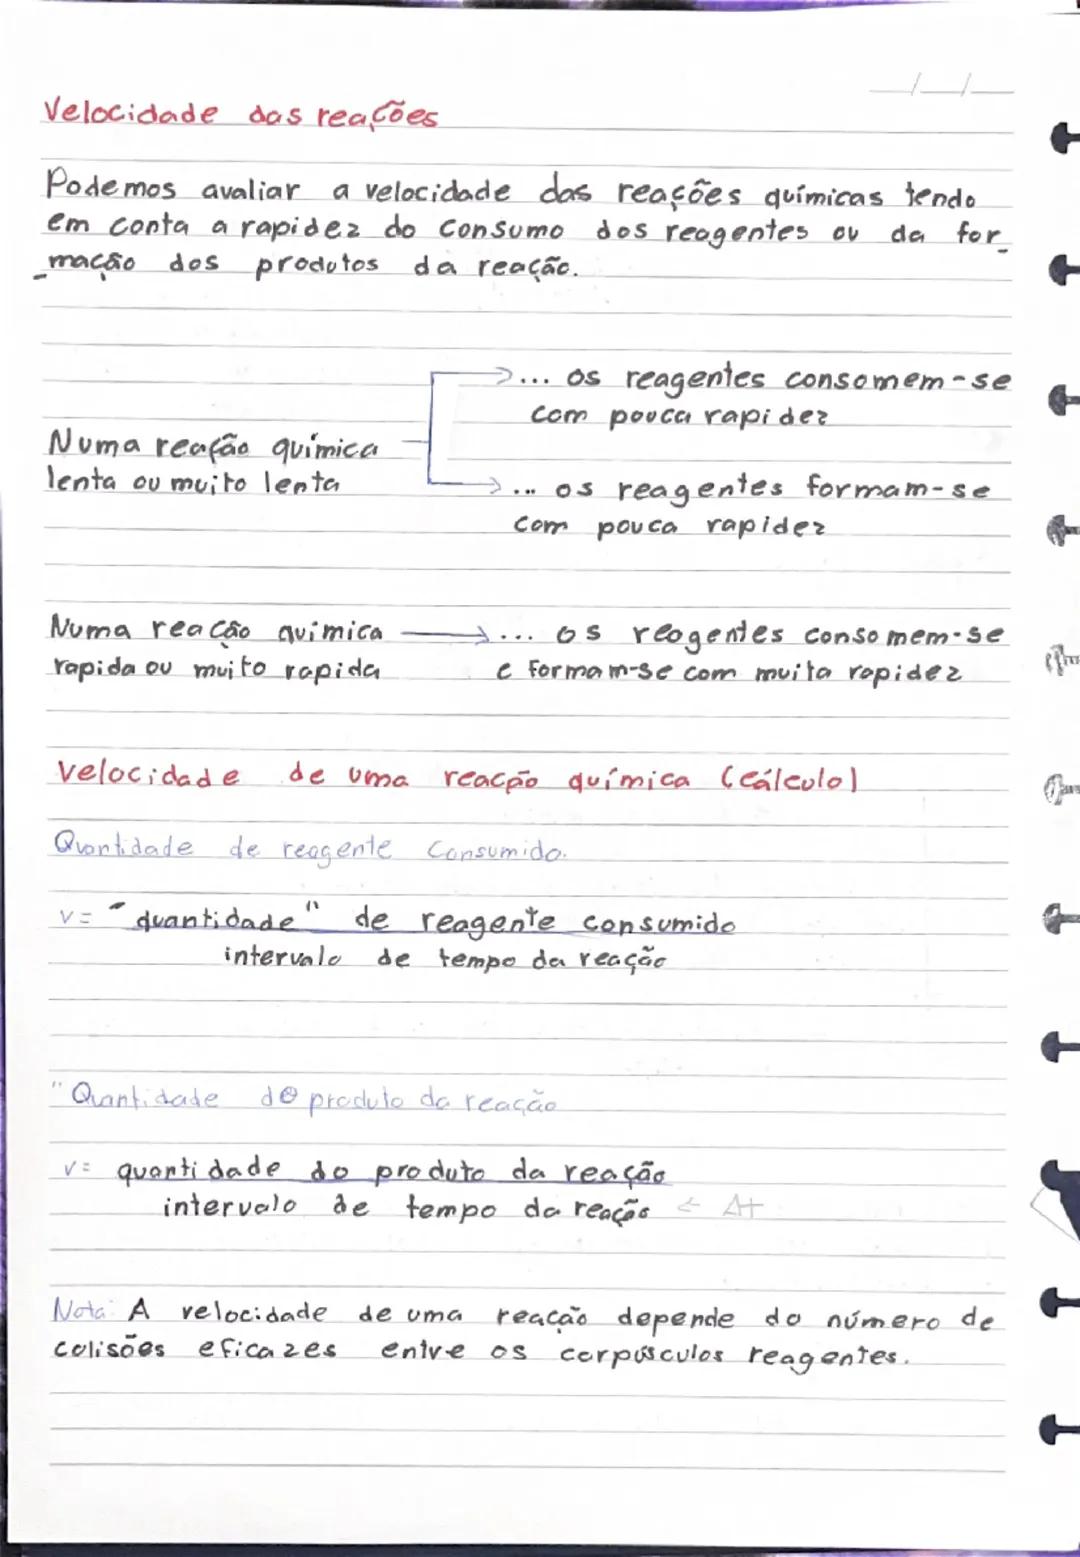 Velocidade das reações
Podemos avaliar a velocidade das reações químicas tendo
em conta a rapidez do consumo dos reagentes ou da for_
_mação dos produtos da reação.
... os reagentes consomem-se
com pouca rapidez
Numa reação química
lenta ou muito lenta
... os reagentes formam-se
com pouca rapidez
Numa reacção quimica ... os reagentes consomem-se
rapida ou muito rapida e formam-se com muita rapidez
Velocidade de uma reacção química (cálculo)
Quantidade de reagente consumido.
v= "quantidade" de reagente consumido
intervalo de tempo da reação
"Quantidade de produto da reação
v= quantidade do produto da reação
intervalo de tempo da reação ← Δt
Nota: A velocidade de uma reacção depende do número de
colisões eficazes entre os corpúsculos reagentes.